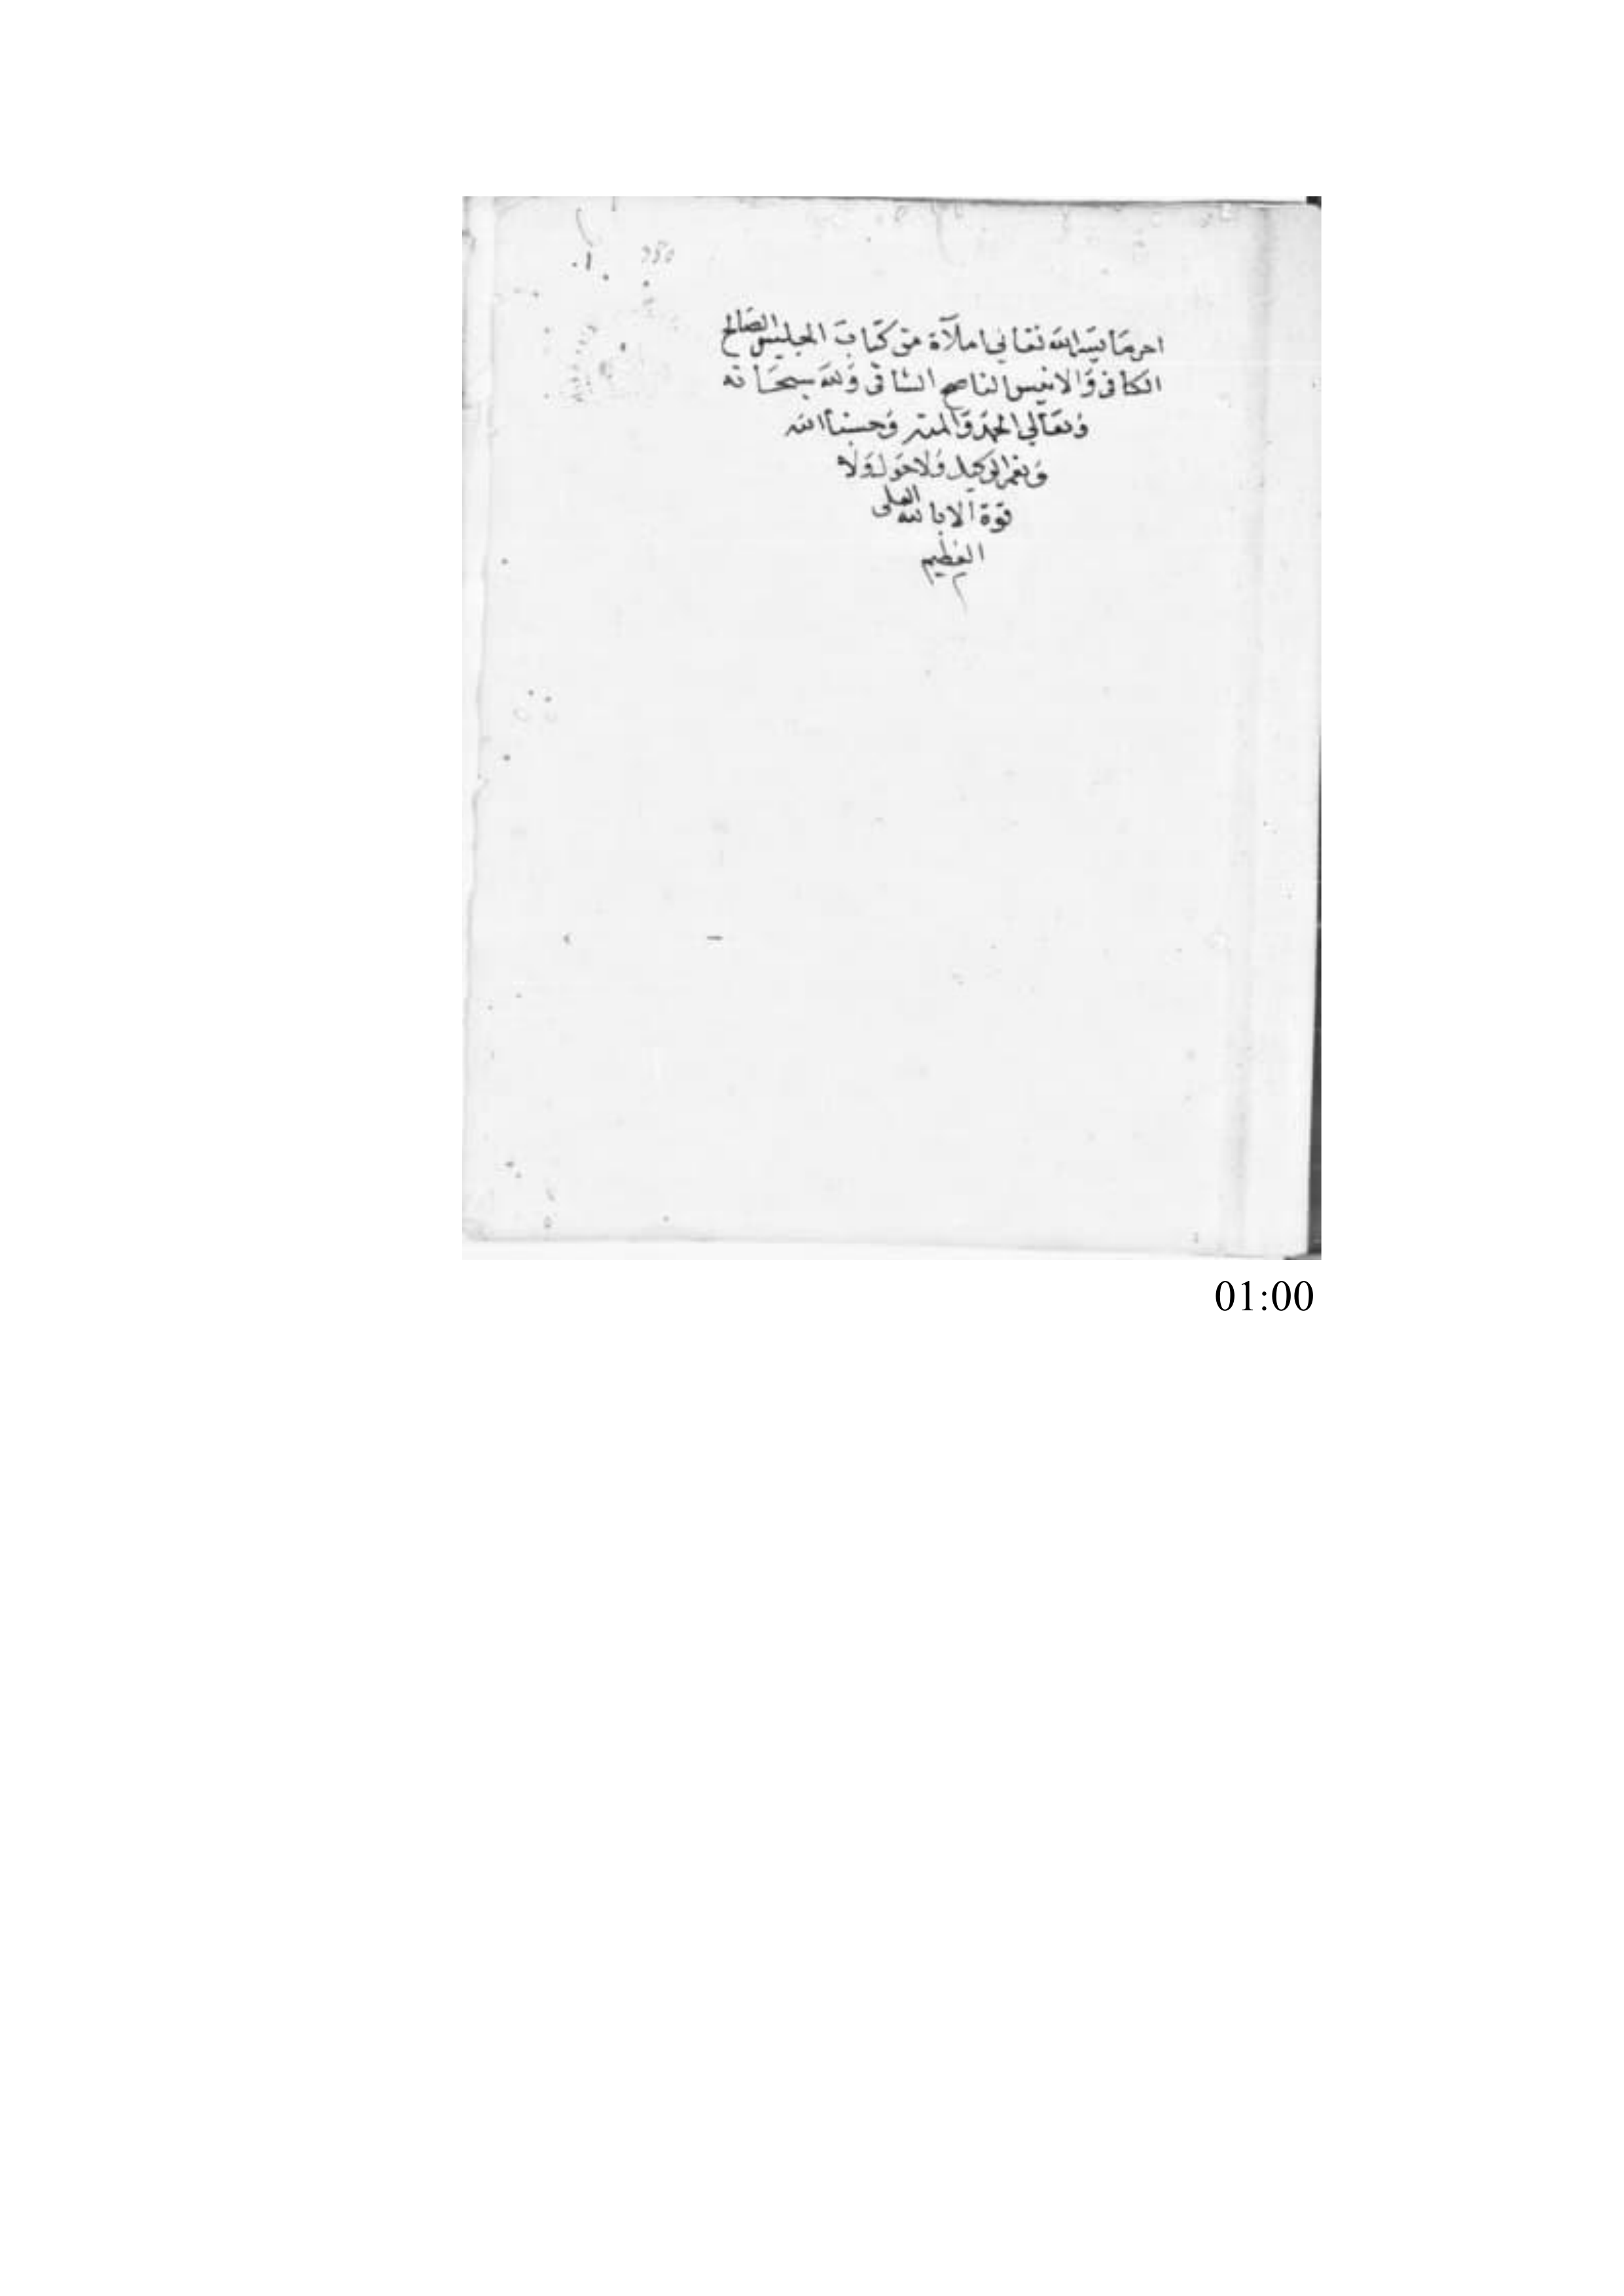 اخر ما يسر الله تعالى املاة من كتاب الجليس الصالح
الكافى والانيس الناصح الشافى ولله سبحانه
وتعالى الحمد والمنه وحسبنا الله
ونعم الوكيل ولا حول ولا
قوة الا بالله العلى
العظيم
01:00